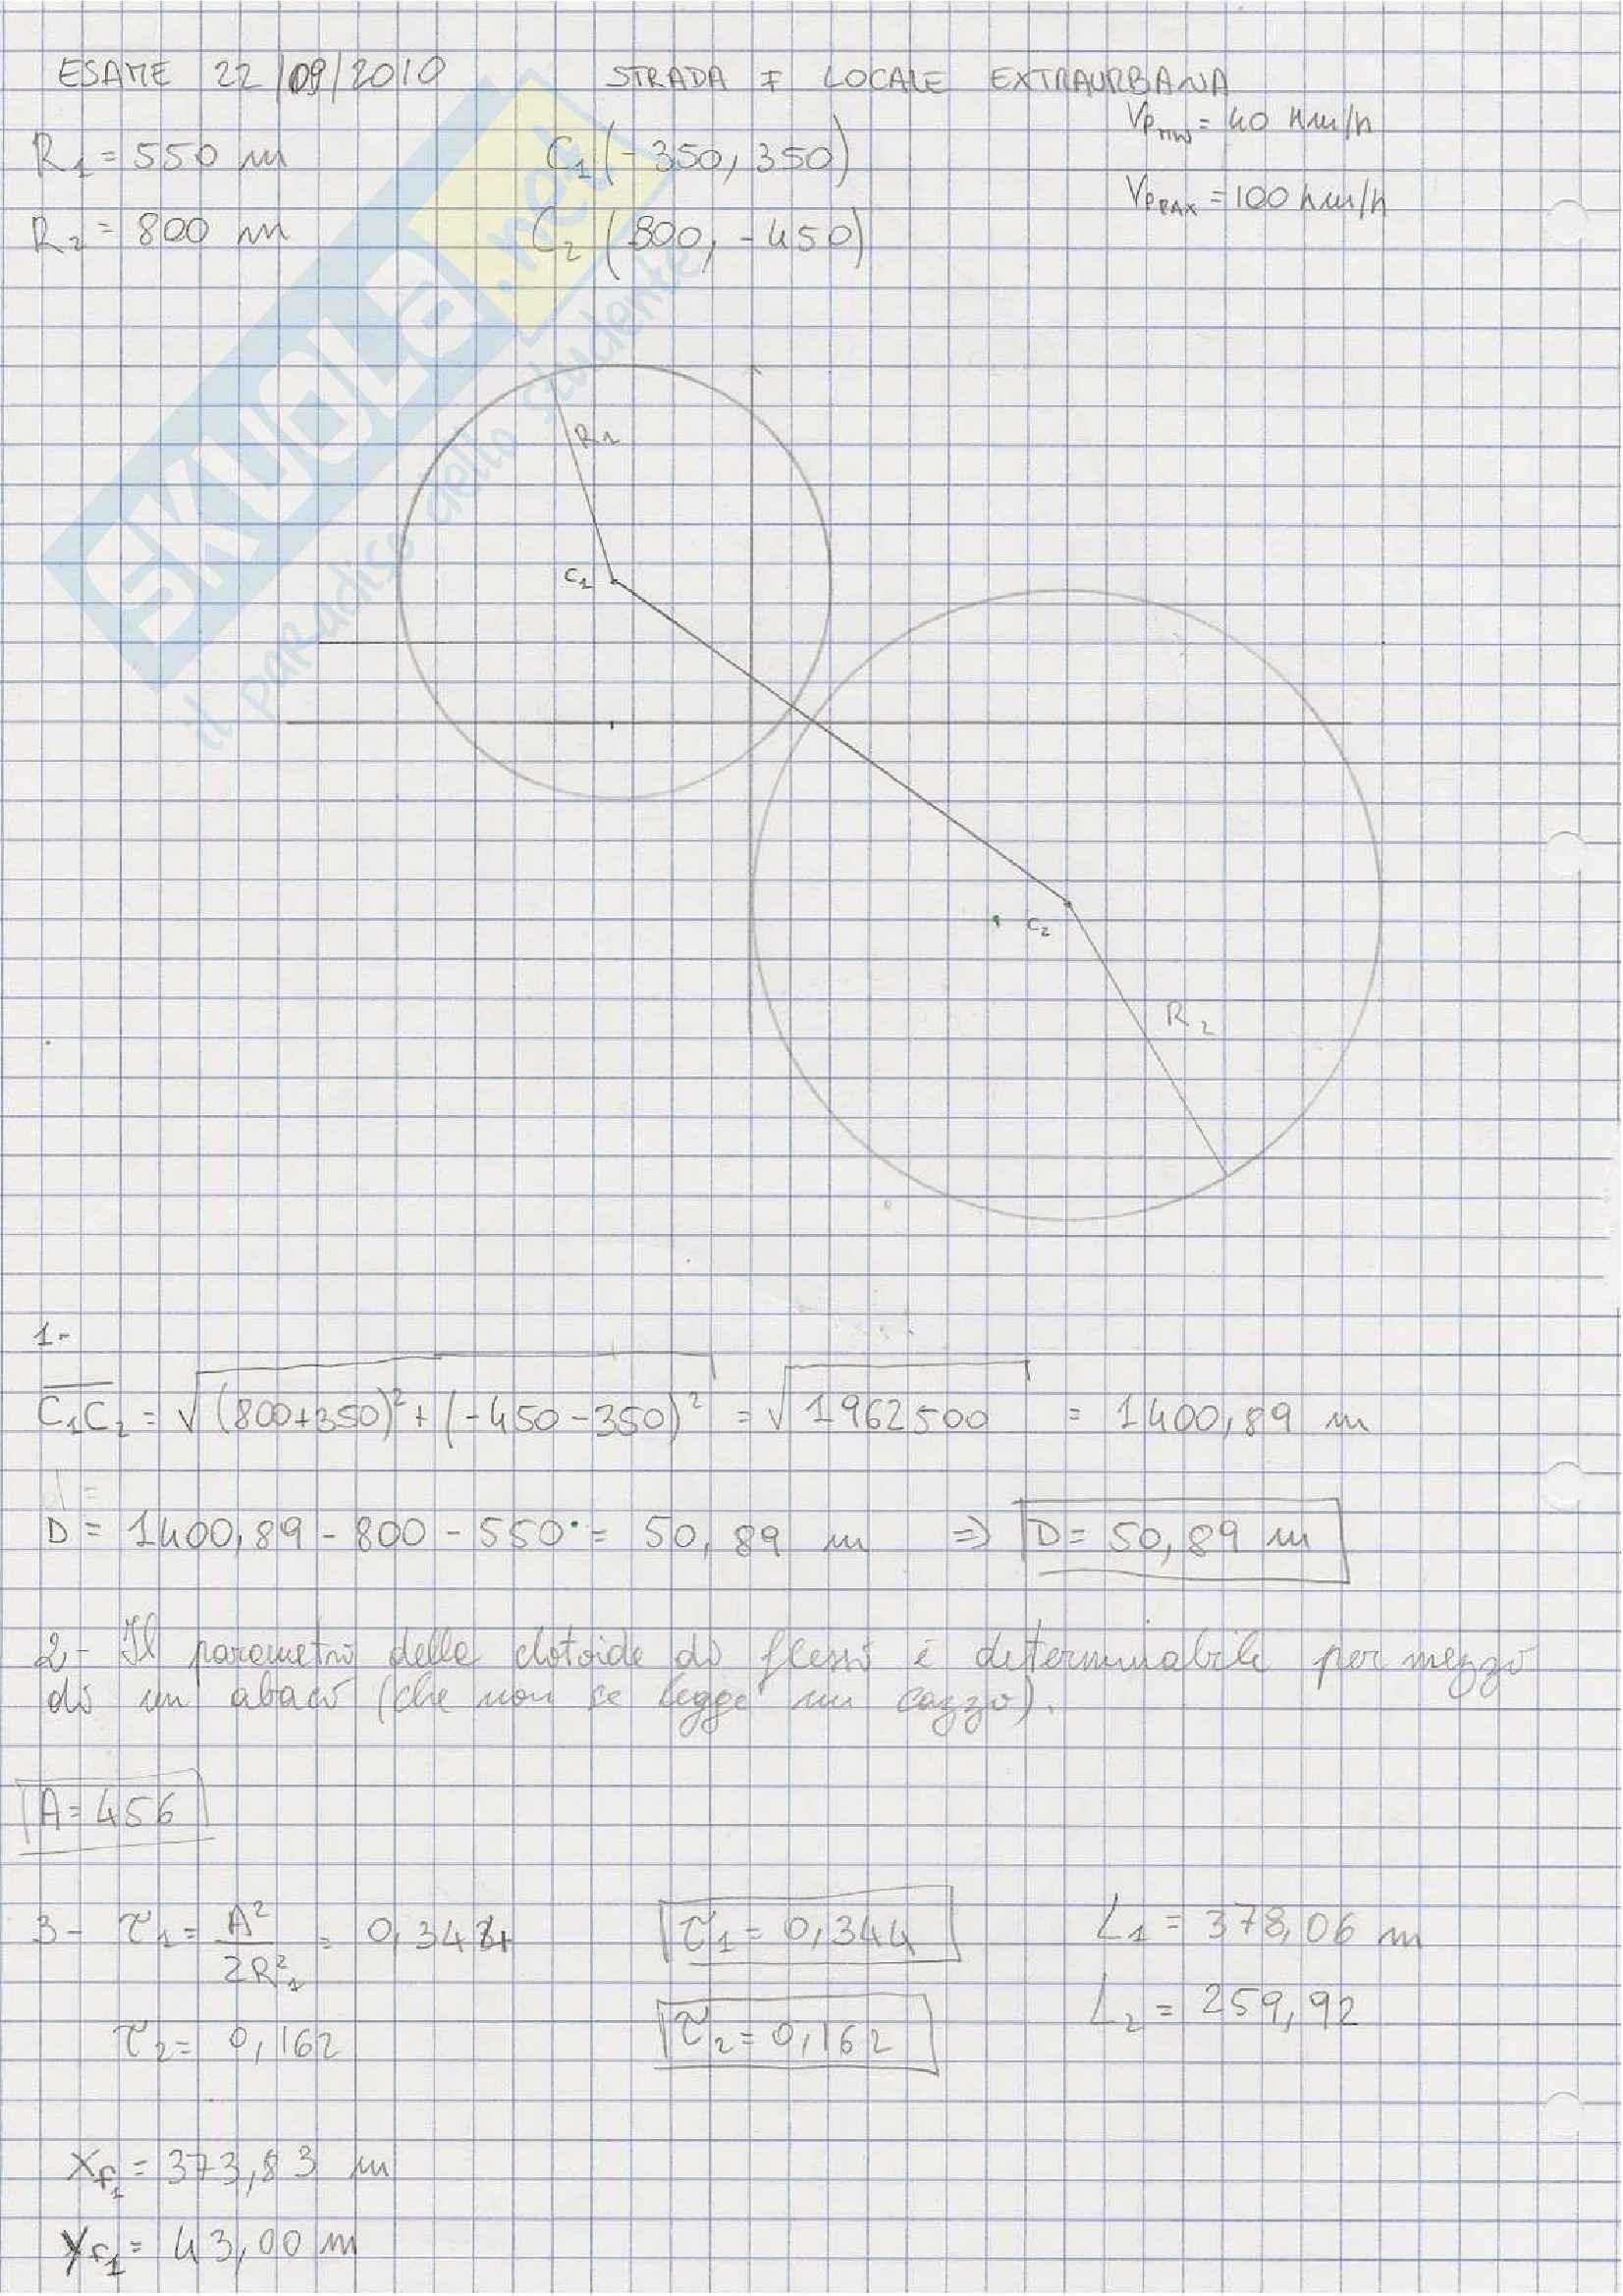 ESAME 22/09/2010 STRADA F LOCALE EXTRAURBANA
VPMIN = 40 km/h
R1 = 550 m C1 (-350, 350)
VPMAX = 100 km/h
R2 = 800 m C2 (800, -450)
SKUOLA.net
il paradiso dello studente
R1
C1
C2
R2
1-
C1C2 = √(800+350)² + (-450-350)² = √1962500 = 1400,89 m
D = 1400,89 - 800 - 550 = 50,89 m ⇒ D = 50,89 m
2- Il parametro della clotoide di flesso è determinabile per mezzo
di un abaco (che non se legge un cazzo).
A = 456
3- τ1 = A²/2R1² = 0,344 τ1 = 0,344 L1 = 378,06 m
τ2 = 0,162 τ2 = 0,162 L2 = 259,92
Xf1 = 373,83 m
Yf1 = 43,00 m